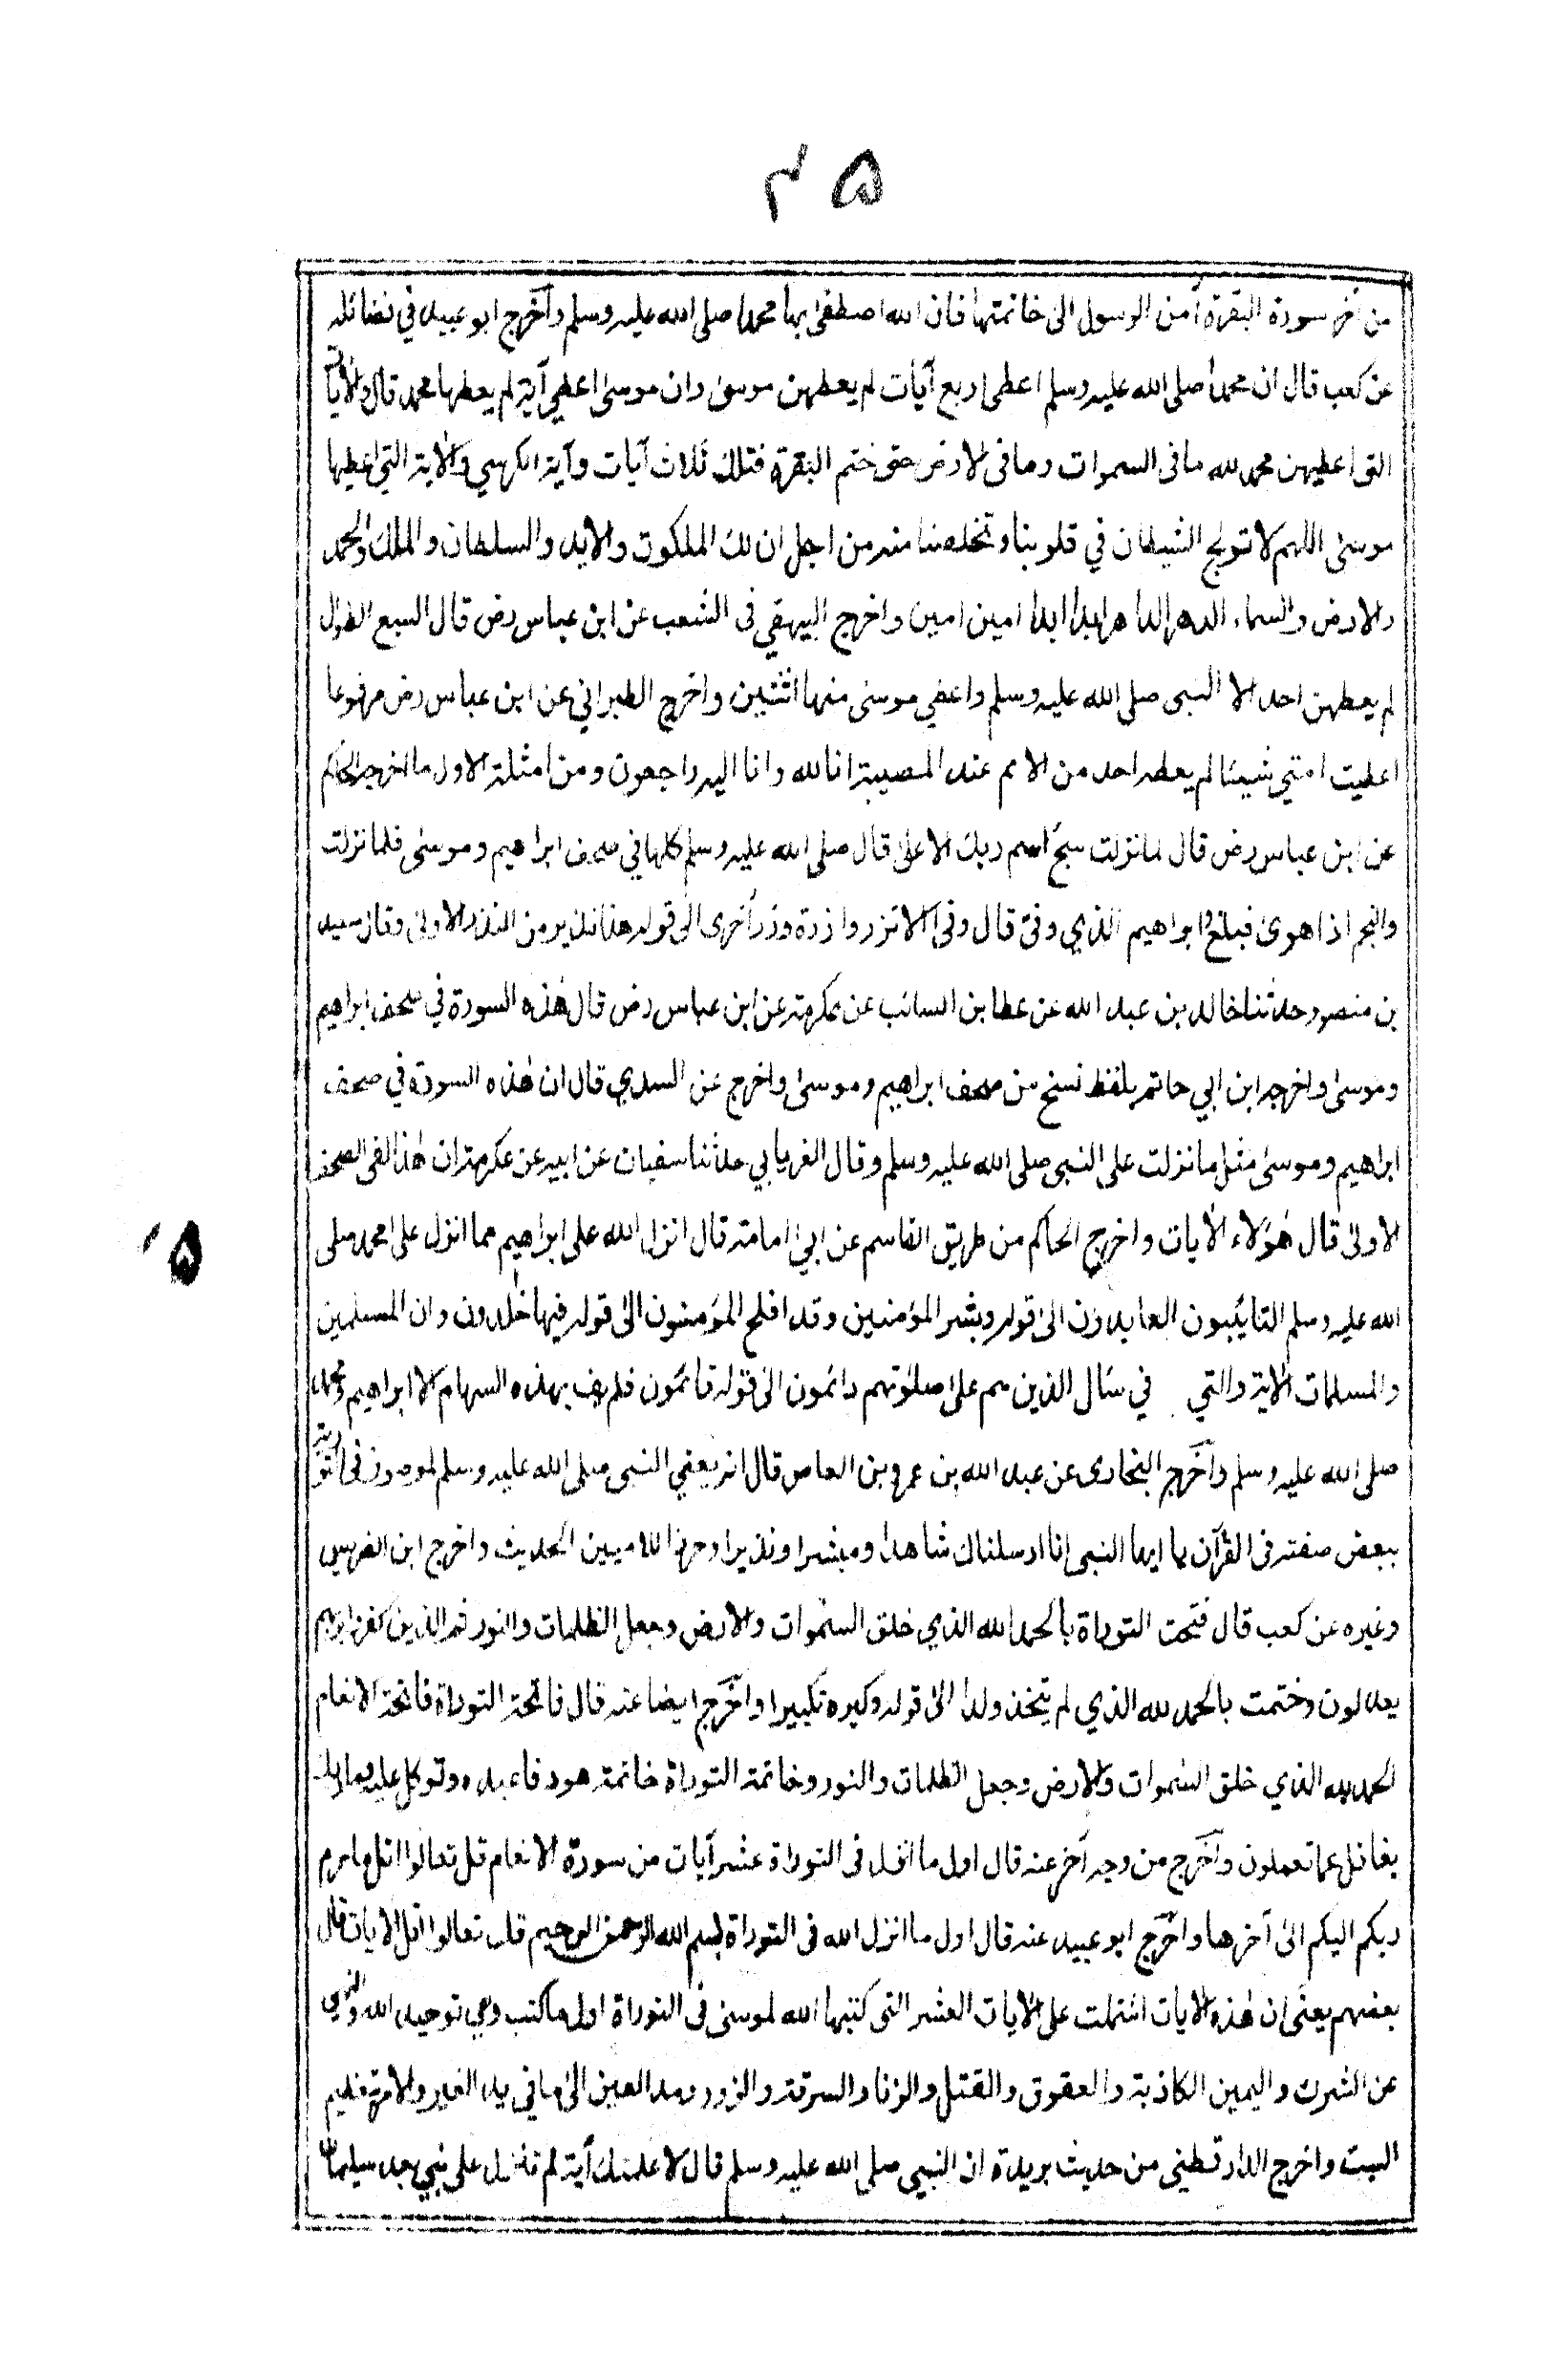 ۴۵
من آخر سورة البقرة آمن الرسول الى خاتمتها فان الله اصطفى بها محمدا صلى الله عليه وسلم وأخرج ابو عبيد في فضائله
عن كعب قال ان محمدا صلى الله عليه وسلم اعطى اربع آيات لم يعطهن موسى وان موسى اعطي آية لم يعطها محمد قال والآيات
التى اعطيهن محمد لله ما فى السموات وما فى الارض حتى ختم البقرة فتلك ثلاث آيات وآية الكرسي والآية التي اعطيها
موسى اللهم لا تولج الشيطان في قلوبنا وتخلصنا منه من اجل ان لك الملكوت والايد والسلطان والملك والحمد
والارض والسماء الدهر الداهر ابدا ابدا امين امين واخرج البيهقي فى الشعب عن ابن عباس رض قال السبع الطوال
لم يعطهن احد الا النبى صلى الله عليه وسلم واعطي موسى منها اثنتين واخرج الطبراني عن ابن عباس رض مرفوعا
اعطيت امتي شيئا لم يعطه احد من الامم عند المصيبة انا لله وانا اليه راجعون ومن امثلة الاول ما اخرجه الحاكم
عن ابن عباس رض قال لما نزلت سبح اسم ربك الاعلى قال صلى الله عليه وسلم كلها في صحف ابراهيم وموسى فلما نزلت
والنجم اذا هوى فبلغ وابراهيم الذي وفى قال وفى الا تزر وازرة وزر أخرى الى قوله هذا نذير من النذر الاولى وقال سعيد
بن منصور حدثنا خالد بن عبد الله عن عطا بن السائب عن عكرمة عن ابن عباس رض قال هذه السورة في صحف ابراهيم
وموسى واخرجه ابن ابي حاتم بلفظ نسخ من صحف ابراهيم وموسى واخرج عن السدي قال ان هذه السورة في صحف
ابراهيم وموسى مثل ما نزلت على النبى صلى الله عليه وسلم وقال الفريابي حدثنا سفيان عن ابيه عن عكرمة ان هذا لفى الصحف
الاولى قال هؤلاء الآيات واخرج الحاكم من طريق القاسم عن ابي امامة قال انزل الله على ابراهيم مما انزل على محمد صلى
الله عليه وسلم التائبون العابدون الى قوله وبشر المؤمنين وقد افلح المؤمنون الى قوله فيها خلدون وان المسلمين
والمسلمات الآية والتي في سأل الذين هم على صلوتهم دائمون الى قوله قائمون فلم يف بهذه السهام الا ابراهيم ومحمد
صلى الله عليه وسلم وأخرج البخارى عن عبد الله بن عمرو بن العاص قال انه يعني النبى صلى الله عليه وسلم لموصوف فى التورية
ببعض صفته فى القرآن يا ايها النبى انا ارسلناك شاهدا ومبشرا ونذيرا وحرزا للاميين الحديث واخرج ابن الضريس
وغيره عن كعب قال فتحت التوراة بالحمد لله الذي خلق السموات والارض وجعل الظلمات والنور ثم الذين كفروا بربهم
يعدلون وختمت بالحمد لله الذي لم يتخذ ولدا الى قوله وكبره تكبيرا وأخرج ايضا عنه قال فاتحة التوراة فاتحة الانعام
الحمد لله الذي خلق السموات والارض وجعل الظلمات والنور وخاتمة التوراة خاتمة هود فاعبده وتوكل عليه وما ربك
بغافل عما تعملون وأخرج من وجه آخر عنه قال اول ما انزل فى التوراة عشر آيات من سورة الانعام قل تعالوا اتل ما حرم
ربكم اليكم الى آخرها وأخرج ابو عبيد عنه قال اول ما انزل الله فى التوراة بسم الله الرحمن الرحيم قل تعالوا اتل الآيات قال
بعضهم يعنى ان هذه الآيات اشتملت على الآيات العشر التى كتبها الله لموسى فى التوراة اول ما كتب وهي توحيد الله والنهي
عن الشرك واليمين الكاذبة والعقوق والقتل والزنا والسرقة والزور ومد العين الى ما في يد الغير والامر بتعظيم
السبت واخرج الدارقطني من حديث بريدة ان النبي صلى الله عليه وسلم قال لاعلمنك آية لم تنزل على نبي بعد سليمان